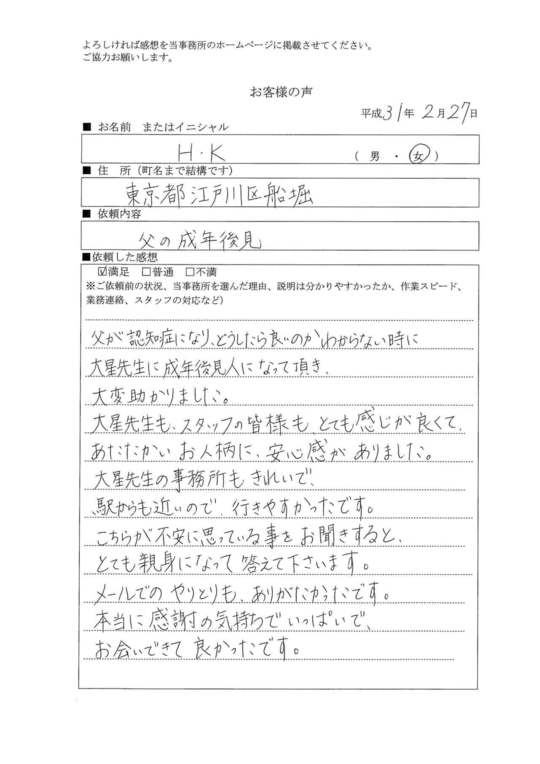 よろしければ感想を当事務所のホームページに掲載させてください。
ご協力お願いします。
お客様の声
平成31年2月27日
■ お名前 またはイニシャル
H・K （ 男 ・ 女 ）
■ 住 所（町名まで結構です）
東京都江戸川区船堀
■ 依頼内容
父の成年後見
■依頼した感想
☑満足 □普通 □不満
※ご依頼前の状況、当事務所を選んだ理由、説明は分かりやすかったか、作業スピード、
業務連絡、スタッフの対応など）
父が認知症になり、どうしたら良いのかわからない時に
大星先生に成年後見人になって頂き、
大変助かりました。
大星先生も、スタッフの皆様も、とても感じが良くて、
あたたかいお人柄に、安心感がありました。
大星先生の事務所もきれいで、
駅からも近いので、行きやすかったです。
こちらが不安に思っている事をお聞きすると、
とても親身になって答えて下さいます。
メールでのやりとりも、ありがたかったです。
本当に感謝の気持ちでいっぱいで、
お会いできて良かったです。